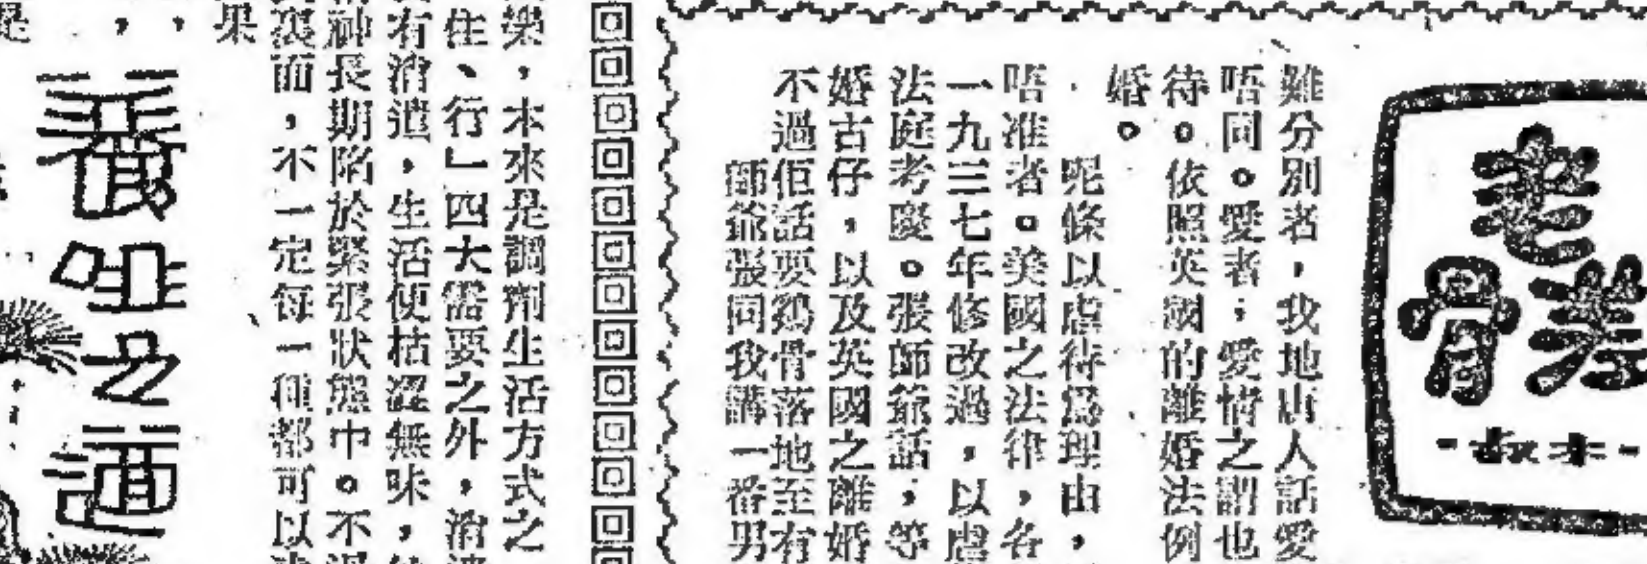 老差骨
-木叔-
難分別者，我地唐人話愛
唔同。愛者；愛情之謂也
待。依照英國的離婚法例
婚。
呢條以虐待為理由，
唔准者。美國之法律，各
一九三七年修改過，以虐
法庭考慮。張師爺話，等
婚古仔，以及英國之離婚
不過佢話要鷄骨落地至有
師爺張同我講一番男
樂，本來是調劑生活方式之
住、行」四大需要之外，消
有消遣，生活便枯澀無味，
神長期陷於緊張狀態中。不
裏面，不一定每一種都可以
果
養生之道
是